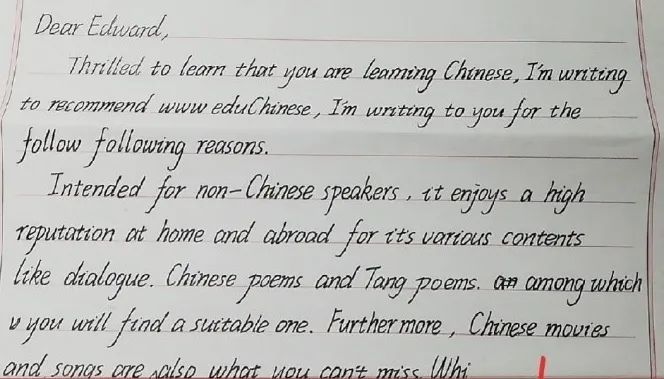 Dear Edward,
Thrilled to learn that you are learning Chinese, I'm writing
to recommend www eduChinese, I'm writing to you for the
follow following reasons.
Intended for non-Chinese speakers, it enjoys a high
reputation at home and abroad for it's various contents
like dialogue. Chinese poems and Tang poems. among which
you will find a suitable one. Furthermore, Chinese movies
and songs are also what you can't miss. Whi